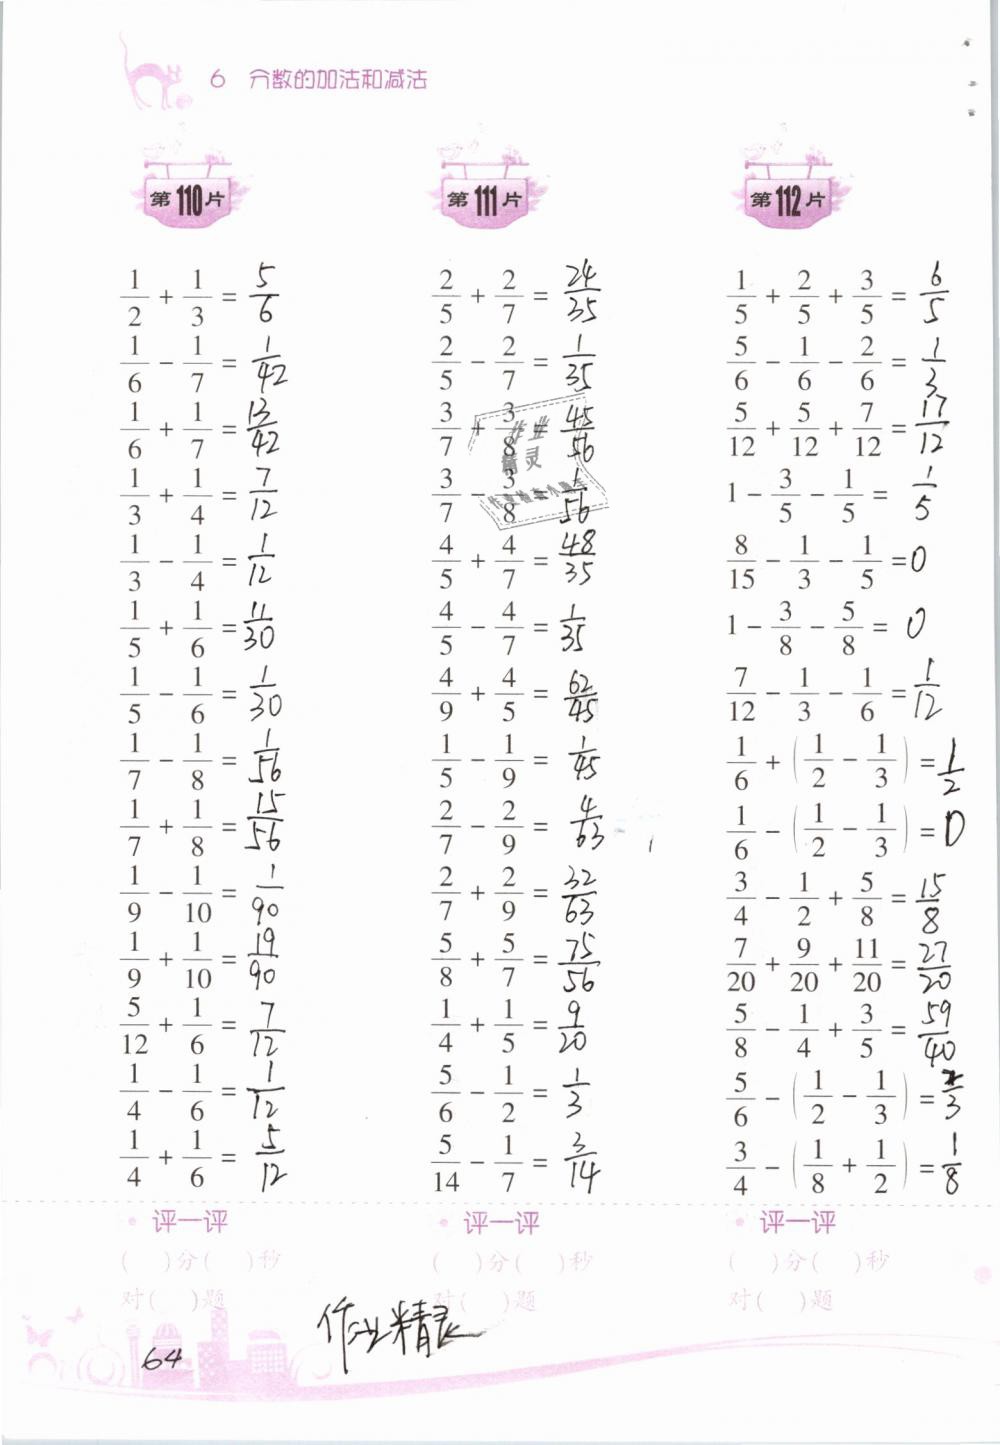 6 分数的加法和减法
第110片
1/2 + 1/3 = 5/6
1/6 - 1/7 = 1/42
1/6 + 1/7 = 13/42
1/3 + 1/4 = 7/12
1/3 - 1/4 = 1/12
1/5 + 1/6 = 11/30
1/5 - 1/6 = 1/30
1/7 - 1/8 = 1/56
1/7 + 1/8 = 15/56
1/9 - 1/10 = 1/90
1/9 + 1/10 = 19/90
5/12 + 1/6 = 7/12
1/4 - 1/6 = 1/12
1/4 + 1/6 = 5/12
评一评
( )分( )秒
对( )题
第111片
2/5 + 2/7 = 24/35
2/5 - 2/7 = 1/35
3/7 + 3/8 = 45/56
3/7 - 3/8 = 1/56
4/5 + 4/7 = 48/35
4/5 - 4/7 = 1/35
4/9 + 4/5 = 62/45
1/5 - 1/9 = 1/45
2/7 - 2/9 = 4/63
2/7 + 2/9 = 32/63
5/8 + 5/7 = 75/56
1/4 + 1/5 = 9/20
5/6 - 1/2 = 1/3
5/14 - 1/7 = 3/14
评一评
( )分( )秒
对( )题
第112片
1/5 + 2/5 + 3/5 = 6/5
5/6 - 1/6 - 2/6 = 1/3
5/12 + 5/12 + 7/12 = 17/12
1 - 3/5 - 1/5 = 1/5
8/15 - 1/3 - 1/5 = 0
1 - 3/8 - 5/8 = 0
7/12 - 1/3 - 1/6 = 1/12
1/6 + (1/2 - 1/3) = 1/2
1/6 - (1/2 - 1/3) = 0
3/4 - 1/2 + 5/8 = 15/8
7/20 + 9/20 + 11/20 = 27/20
5/8 - 1/4 + 3/5 = 59/40
5/6 - (1/2 - 1/3) = 2/3
3/4 - (1/8 + 1/2) = 1/8
评一评
( )分( )秒
对( )题
作业
精灵
作业精灵
64